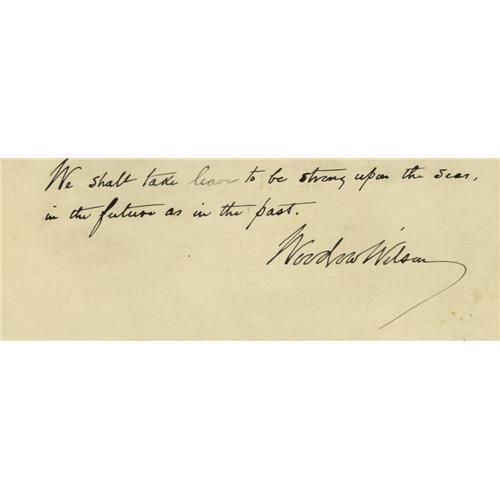 We shall take leave to be strong upon the seas,
in the future as in the past.
Woodrow Wilson